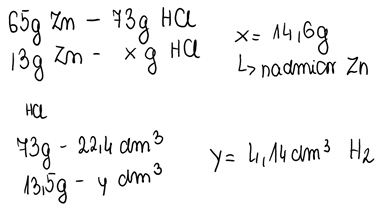 65g Zn - 73g HCl
13g Zn - x g HCl
x = 14,6g
↳ nadmiar Zn
HCl
73g - 22,4 dm³
13,5g - y dm³
y = 4,14 dm³ H₂